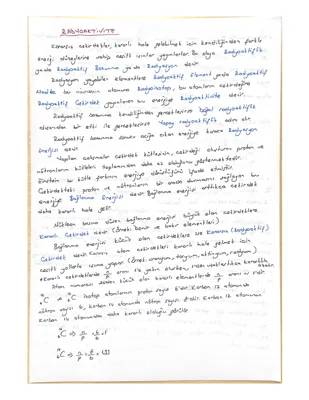 RADYOAKTİVİTE
Kararsız çekirdekler, kararlı hale gelebilmek için kendiliğinden farklı
enerji düzeylerine sahip çeşitli ışınlar yayınlarlar. Bu olaya Radyoaktiflik
yada Radyoaktif Bozunma yada Radyasyon denir.
Radyasyon yayabilen elementlere Radyoaktif Element yada Radyoaktif
bu numunenin atomuna Radyoizotop, bu atomların çekirdeğine
Radyoaktif Çekirdek yayınlanan bu enerjiye Radyoaktivite denir.
Radyoaktif bozunma kendiliğinden gerçekleşirse Doğal radyoaktiflik
dışarıdan bir etki ile gerçekleşirse Yapay radyoaktiflik adını alır.
Radyoaktif bozunma sonucu açığa çıkan enerjiye bazen Radyasyon
Enerjisi denir.
Yapılan çalışmalar çekirdek kütlesinin, çekirdeği oluşturan proton ve
nötronların kütleleri toplamından daha az olduğunu göstermektedir.
Einstein bu kütle farkının enerjiye dönüştüğünü ifade etmiştir.
Çekirdekteki proton ve nötronların bir arada durmasını sağlayan bu
enerjiye Bağlanma Enerjisi denir. Bağlanma enerjisi arttıkça çekirdek
daha kararlı hale gelir.
Nükleon başına düşen bağlanma enerjisi büyük olan çekirdeklere
Kararlı Çekirdek denir (Örnek: Demir ve bakır elementleri)
Bağlanma enerjisi küçük olan çekirdeklere ise Kararsız (Radyoaktif)
Çekirdek denir. Kararsız olan çekirdekleri kararlı hale gelmek için
çeşitli yollarla ışıma yapar (Örnek: uranyum, toryum, aktinyum, radyum)
Atom numarası 20'den küçük olan kararlı elementlerde n/p oranı
C izotop atomların proton sayısı 6'dır. Karbon 12 atomunda
nötron sayısı 6, karbon 14 atomunda nötron sayısı 8'dir. Karbon 12 atomunun
Karbon 14 atomundan daha kararlı olduğu görülür.
C ⇒ n/p = 6/6 = 1
C ⇒ n/p = 8/6 = 1,33